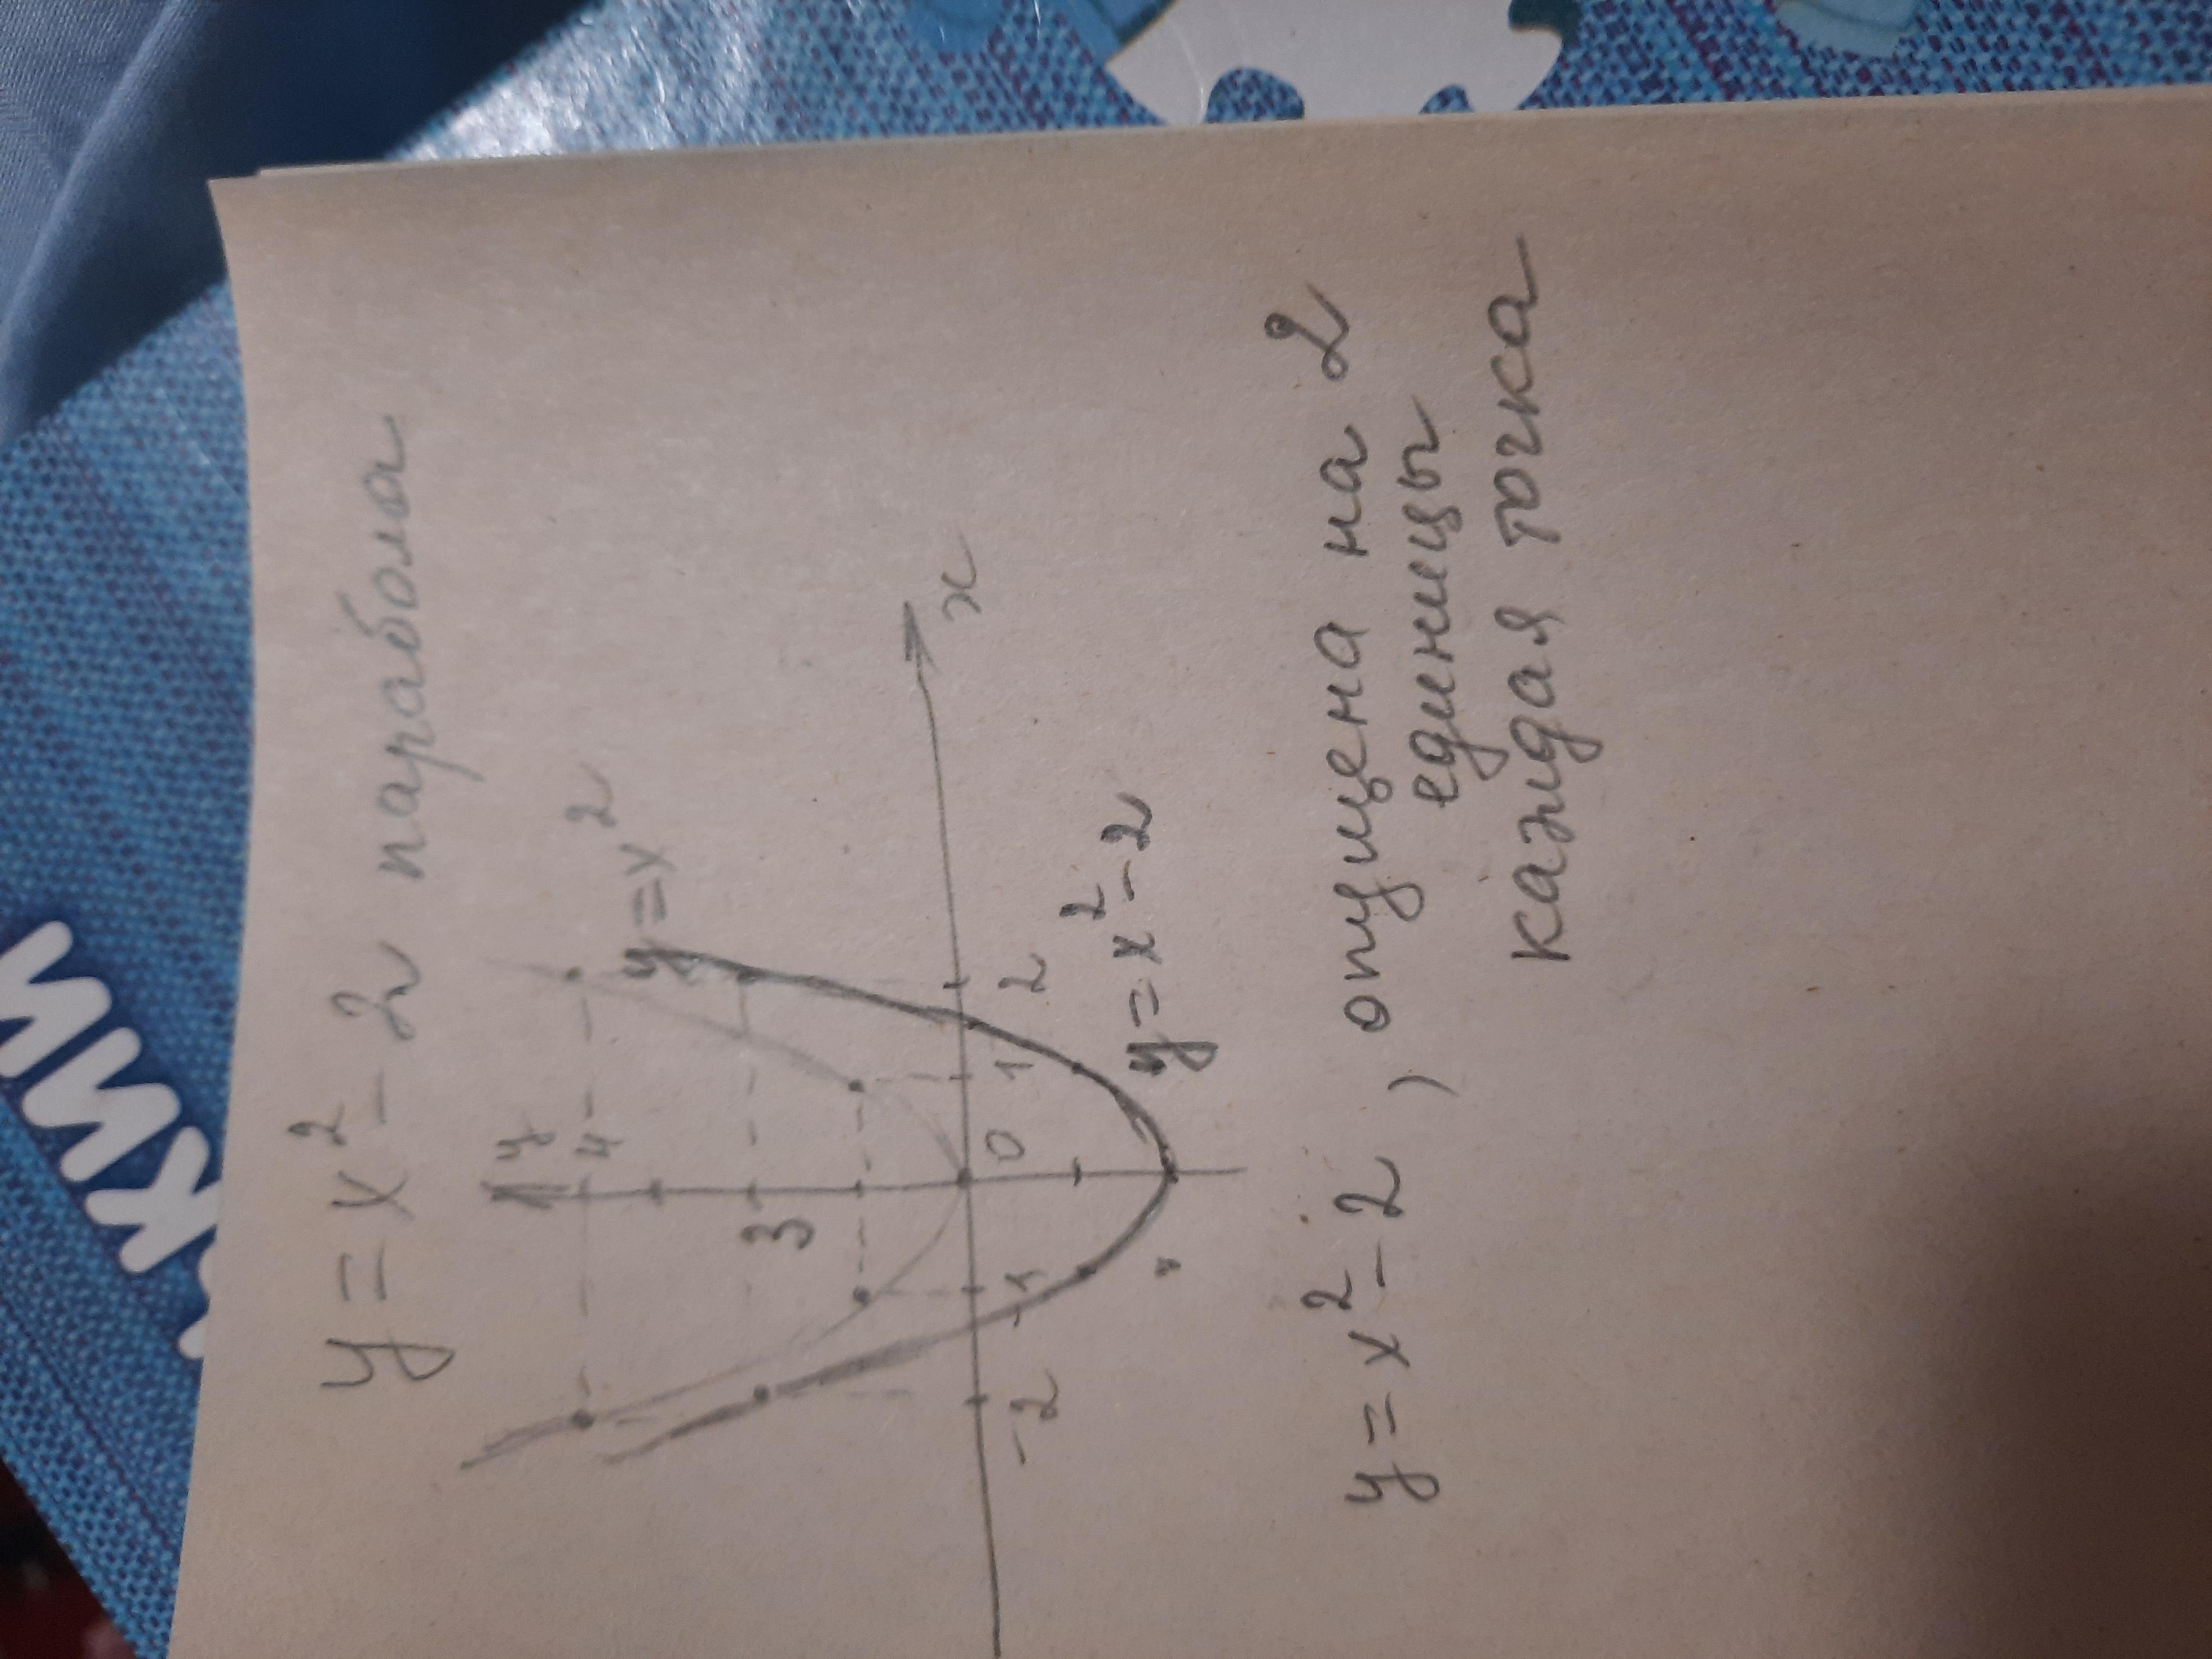 y = x² - 2 парабола
y
4
y = x²
3
x
-2
1
0
1
2
y = x² - 2
y = x² - 2, опущена на 2
единицы
каждая точка